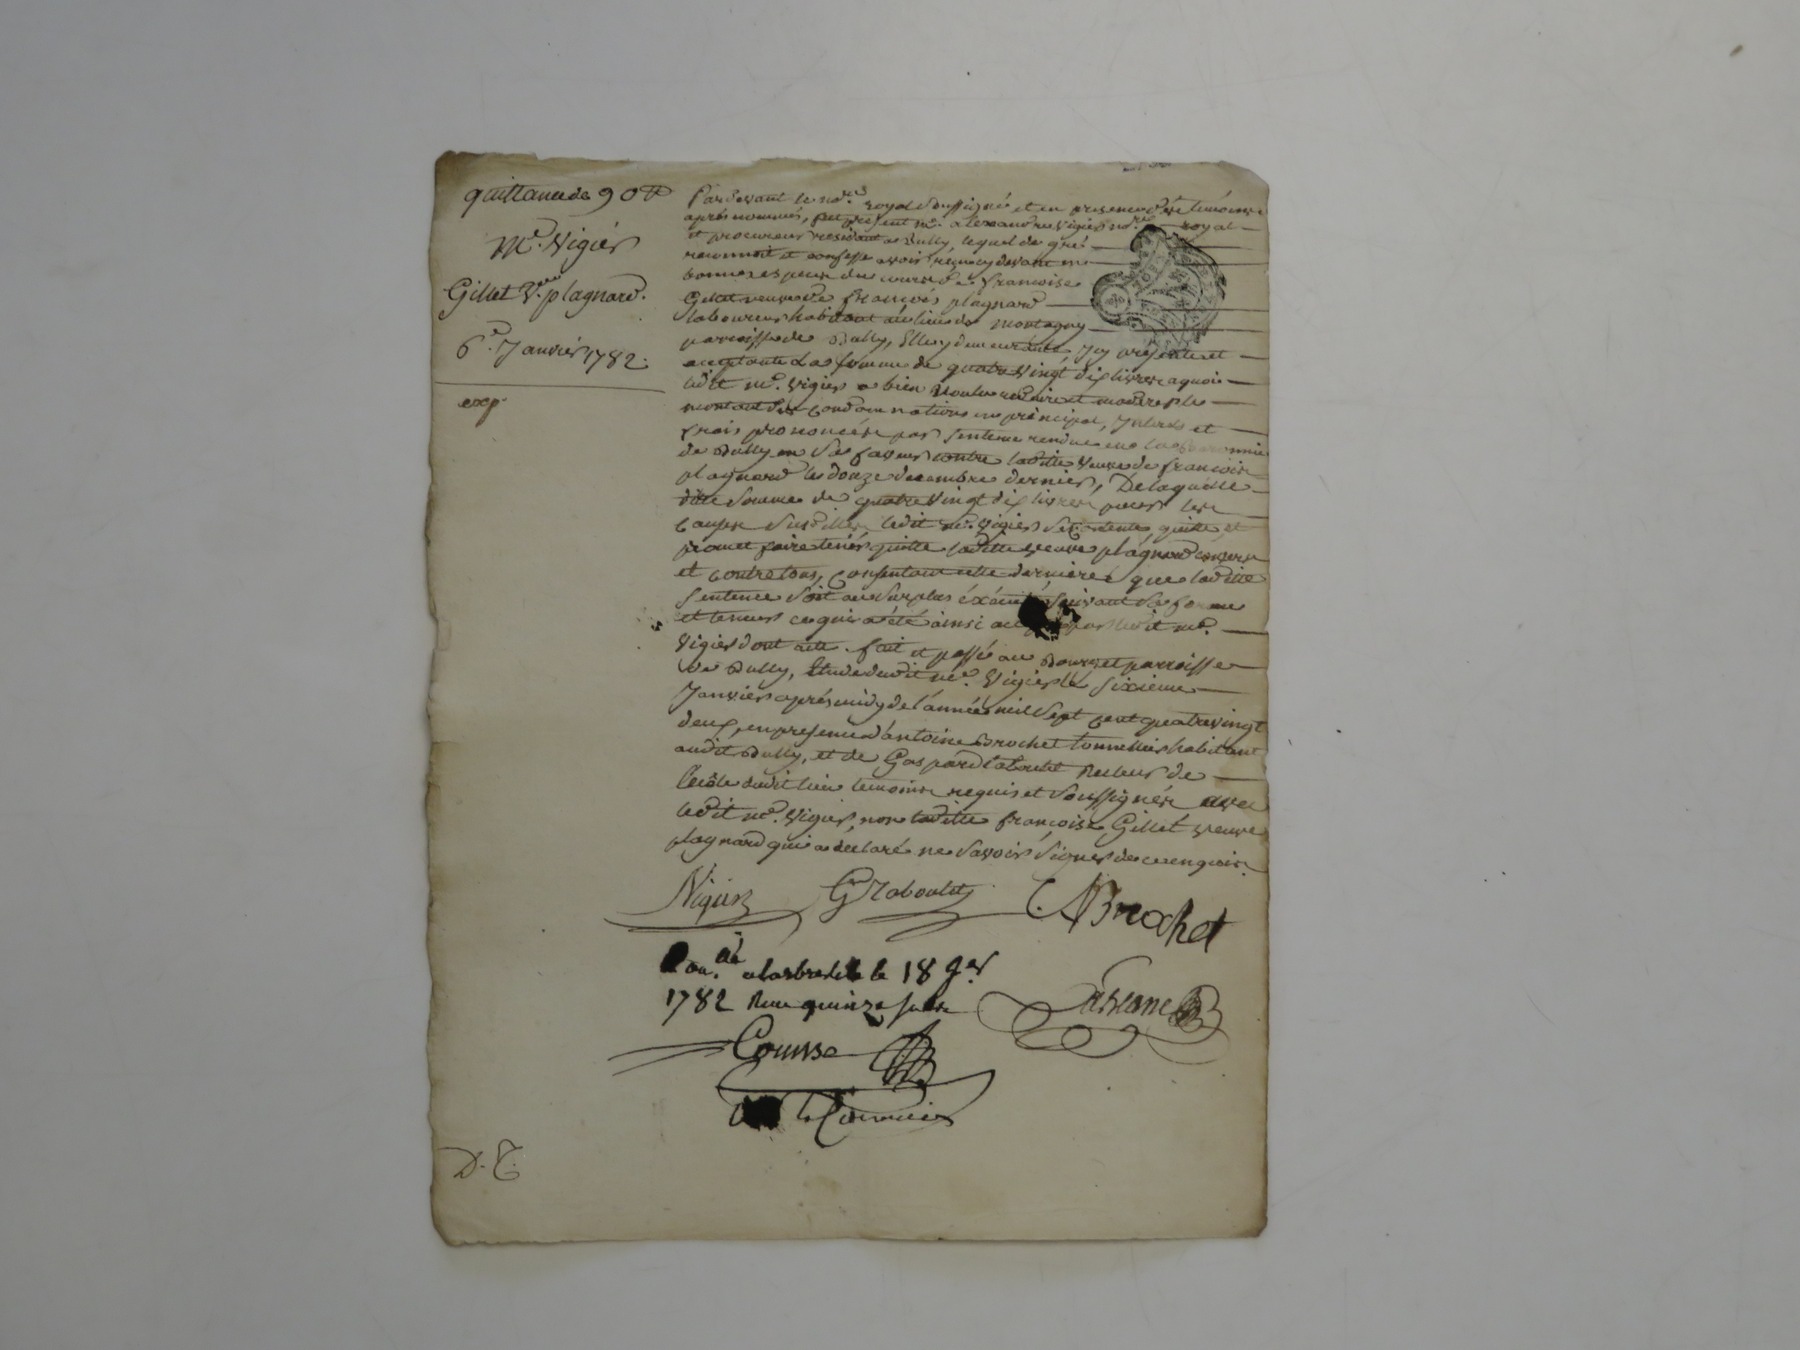 quittance de 90 ₶
Me. Vigier
Gillet Ve. plagnard.
6e. Janvier 1782.
exp.
Pardevant le nore. royal soussigné et en presence des temoins
après nommés, fut présent me. alexandre Vigier nore. royal
et procureur residant a Bully, lequel de gré
reconnoit et confesse avoir reçu cy devant en
bonnes especes du cours de françoise
Gillet veuve de françois plagnard
laboureur habitant au lieu de Montagny
parroisse de Bully, Elle y demeurante, Icy présente et
acceptante La somme de quatre vingt dix livres a quoi
ledit me. Vigier a bien voulu reduire et moderer le
montant des Condamnations en principal, Interets et
frais prononcées par Sentence rendue en la Baronnie
de Bully en Sa faveur contre laditte veuve de françois
plagnard le douze decembre dernier, De laquelle
ditte Somme de quatre vingt dix livres pour les
Causes Susdittes ledit me. Vigier Se Contente, quitte et
promet faire tenir quitte laditte veuve plagnard envers
et contre tous, Consentant cette derniere que laditte
Sentence Soit au Surplus éxécutée Suivant Sa forme
et teneur ce qui a été ainsi accepté par ledit me.
Vigier dont acte. fait et passé au Bourg et parroisse
de Bully, Etude dudit me. Vigier le Sixieme
Janvier après midy de l'année mil Sept Cent quatre vingt
deux, en presence d'antoine Brochet tonnellier habitant
audit Bully, et de Gaspard Raboulet Recteur de
l'école dudit lieu temoins requis et Soussignés avec
ledit me. Vigier, non laditte françoise Gillet veuve
plagnard qui a declaré ne Savoir Signer de ce enquise.
Vigier GRaboulet ABrochet
Con.lé a larbresle le 18 Jer
1782 Reçu quinze sols
Coursse
D. T.